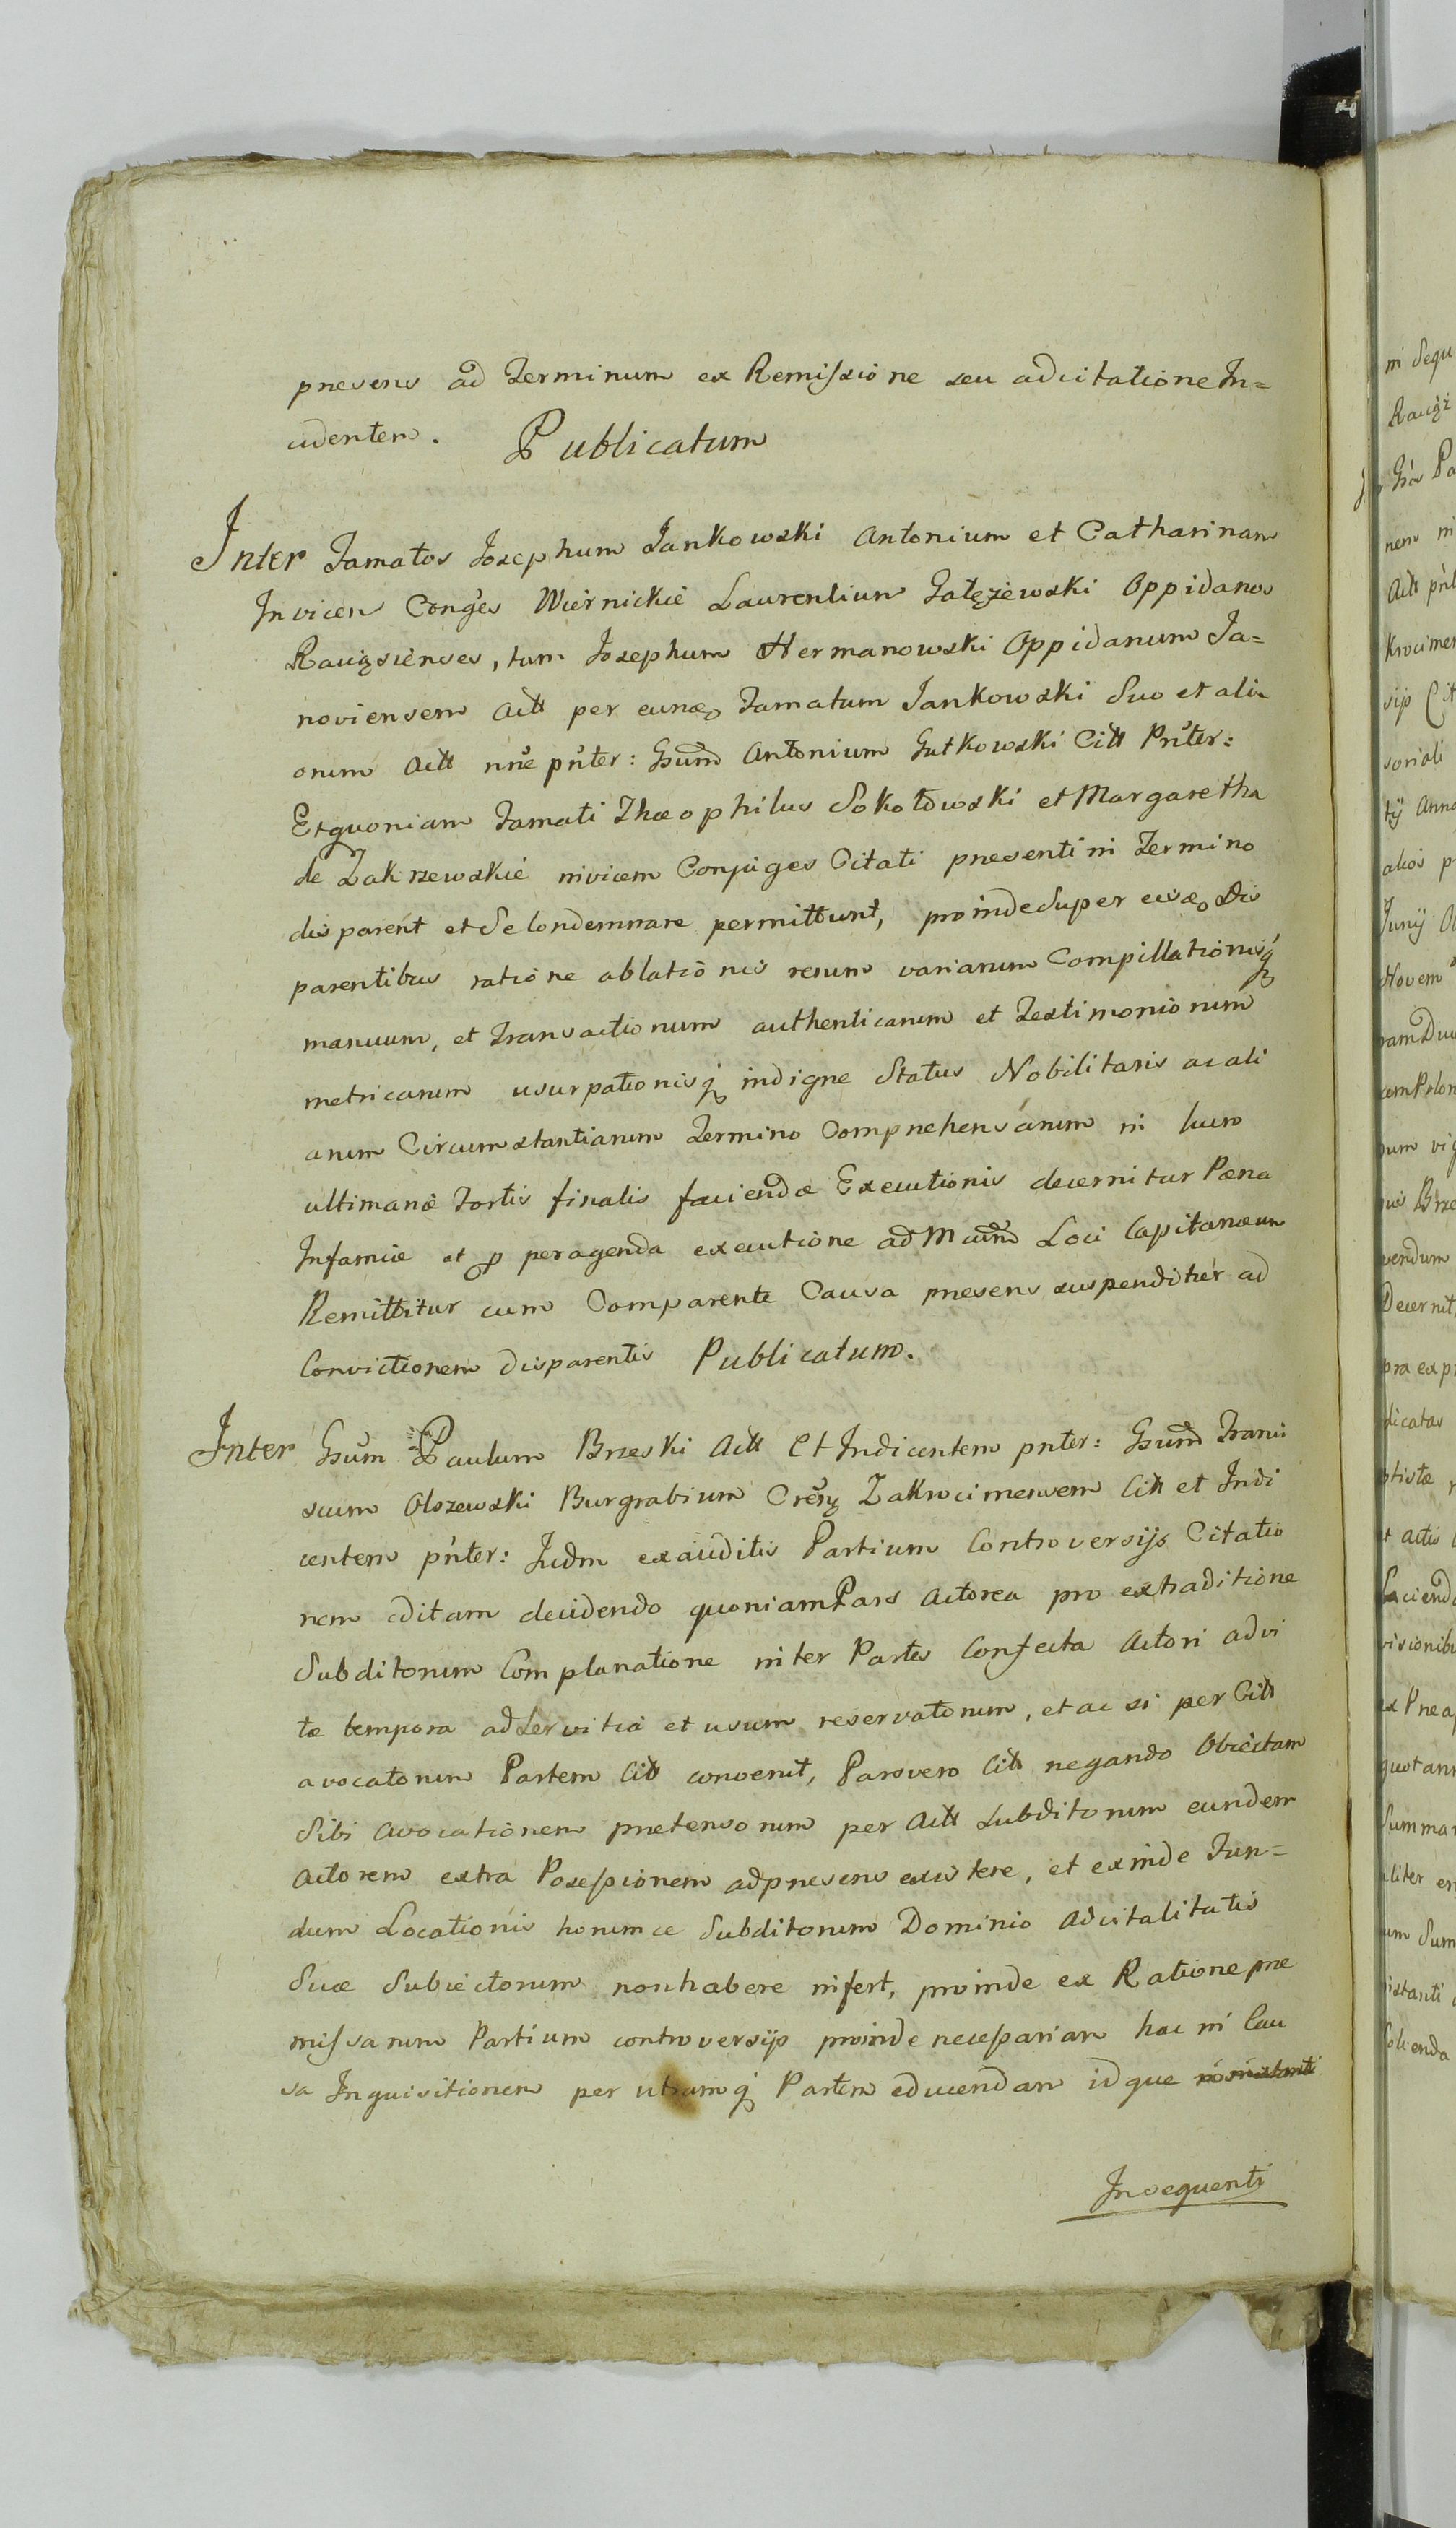 presens ad Terminum ex Remissione seu adcitatione In=
cidentem. Publicatum
Inter Famatos Josephum Jankowski Antonium et Catharinam
Invicem Conges Wiernickie Laurentium Załęzewski Oppidanos
Raciązsienses, tum Josephum Hermanowski Oppidanum Ja=
noviensem Actt per eund Famatum Jankowski Suo et alio
orum Actt nne pnter: Gsum Antonium Gutkowski Citt Pnter:
Et quoniam Famati Theophilus Sokołowski et Margaretha
de Zakrzewskie invicem Conjuges Citati presenti in Termino
disparent et se Condemnare permittunt, proinde Super eisd Dis
parentibus ratione ablationis rerum variarum Compillationisq
manuum, et Transactionum authenticarum et Testimoniorum
metricarum usurpationisq indigne Status Nobilitaris ac ali
arum Circumstantiarum Termino Comprehensarum in lucro
ultimariæ Sortis finalis faciendæ Executionis decernitur Pæna
Infamiæ et p peragenda executione ad Mcum Loci Capitaneum
Remittitur cum Comparente Causa presens suspenditur ad
Convictionem disparentis Publicatum.
Inter Gsum Paulum Brzeski Actt Et Indicentem pnter: Gsum Franci
scum Olszewski Burgrabium Crem Zakrocimensem Citt et Indi
centem pnter: Judm exauditis Partium Controversijs Citatio
nem editam decidendo quoniam Pars Actorea pro extraditione
Subditorum Complanatione inter Partes Confecta Actori ad vi
tæ tempora ad Servitia et usum reservatorum, et ac si per Citt
avocatorum Partem Citt convenit, Pars vero Citt negando Obiectam
Sibi Avocationem pretensorum per Actt Subditorum eundem
Actorem extra Possessionem ad presens existere, et exinde Fun=
dum Locationis horumce Subditorum Dominio Advitalitatis
Suæ Subiectorum non habere infert, proinde ex Ratione præ
missarum Partium controversijs proinde necessariam hac in Cau
sa Inquisitionem per utramq Partem educendam idque
Insequenti